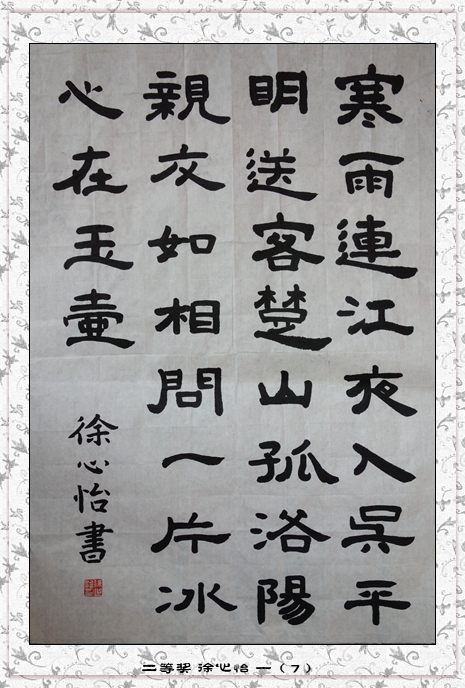 寒雨連江夜入吴平
明送客楚山孤洛陽
親友如相問一片冰
心在玉壷
徐心怡書
二等奖 徐心怡 一（7）